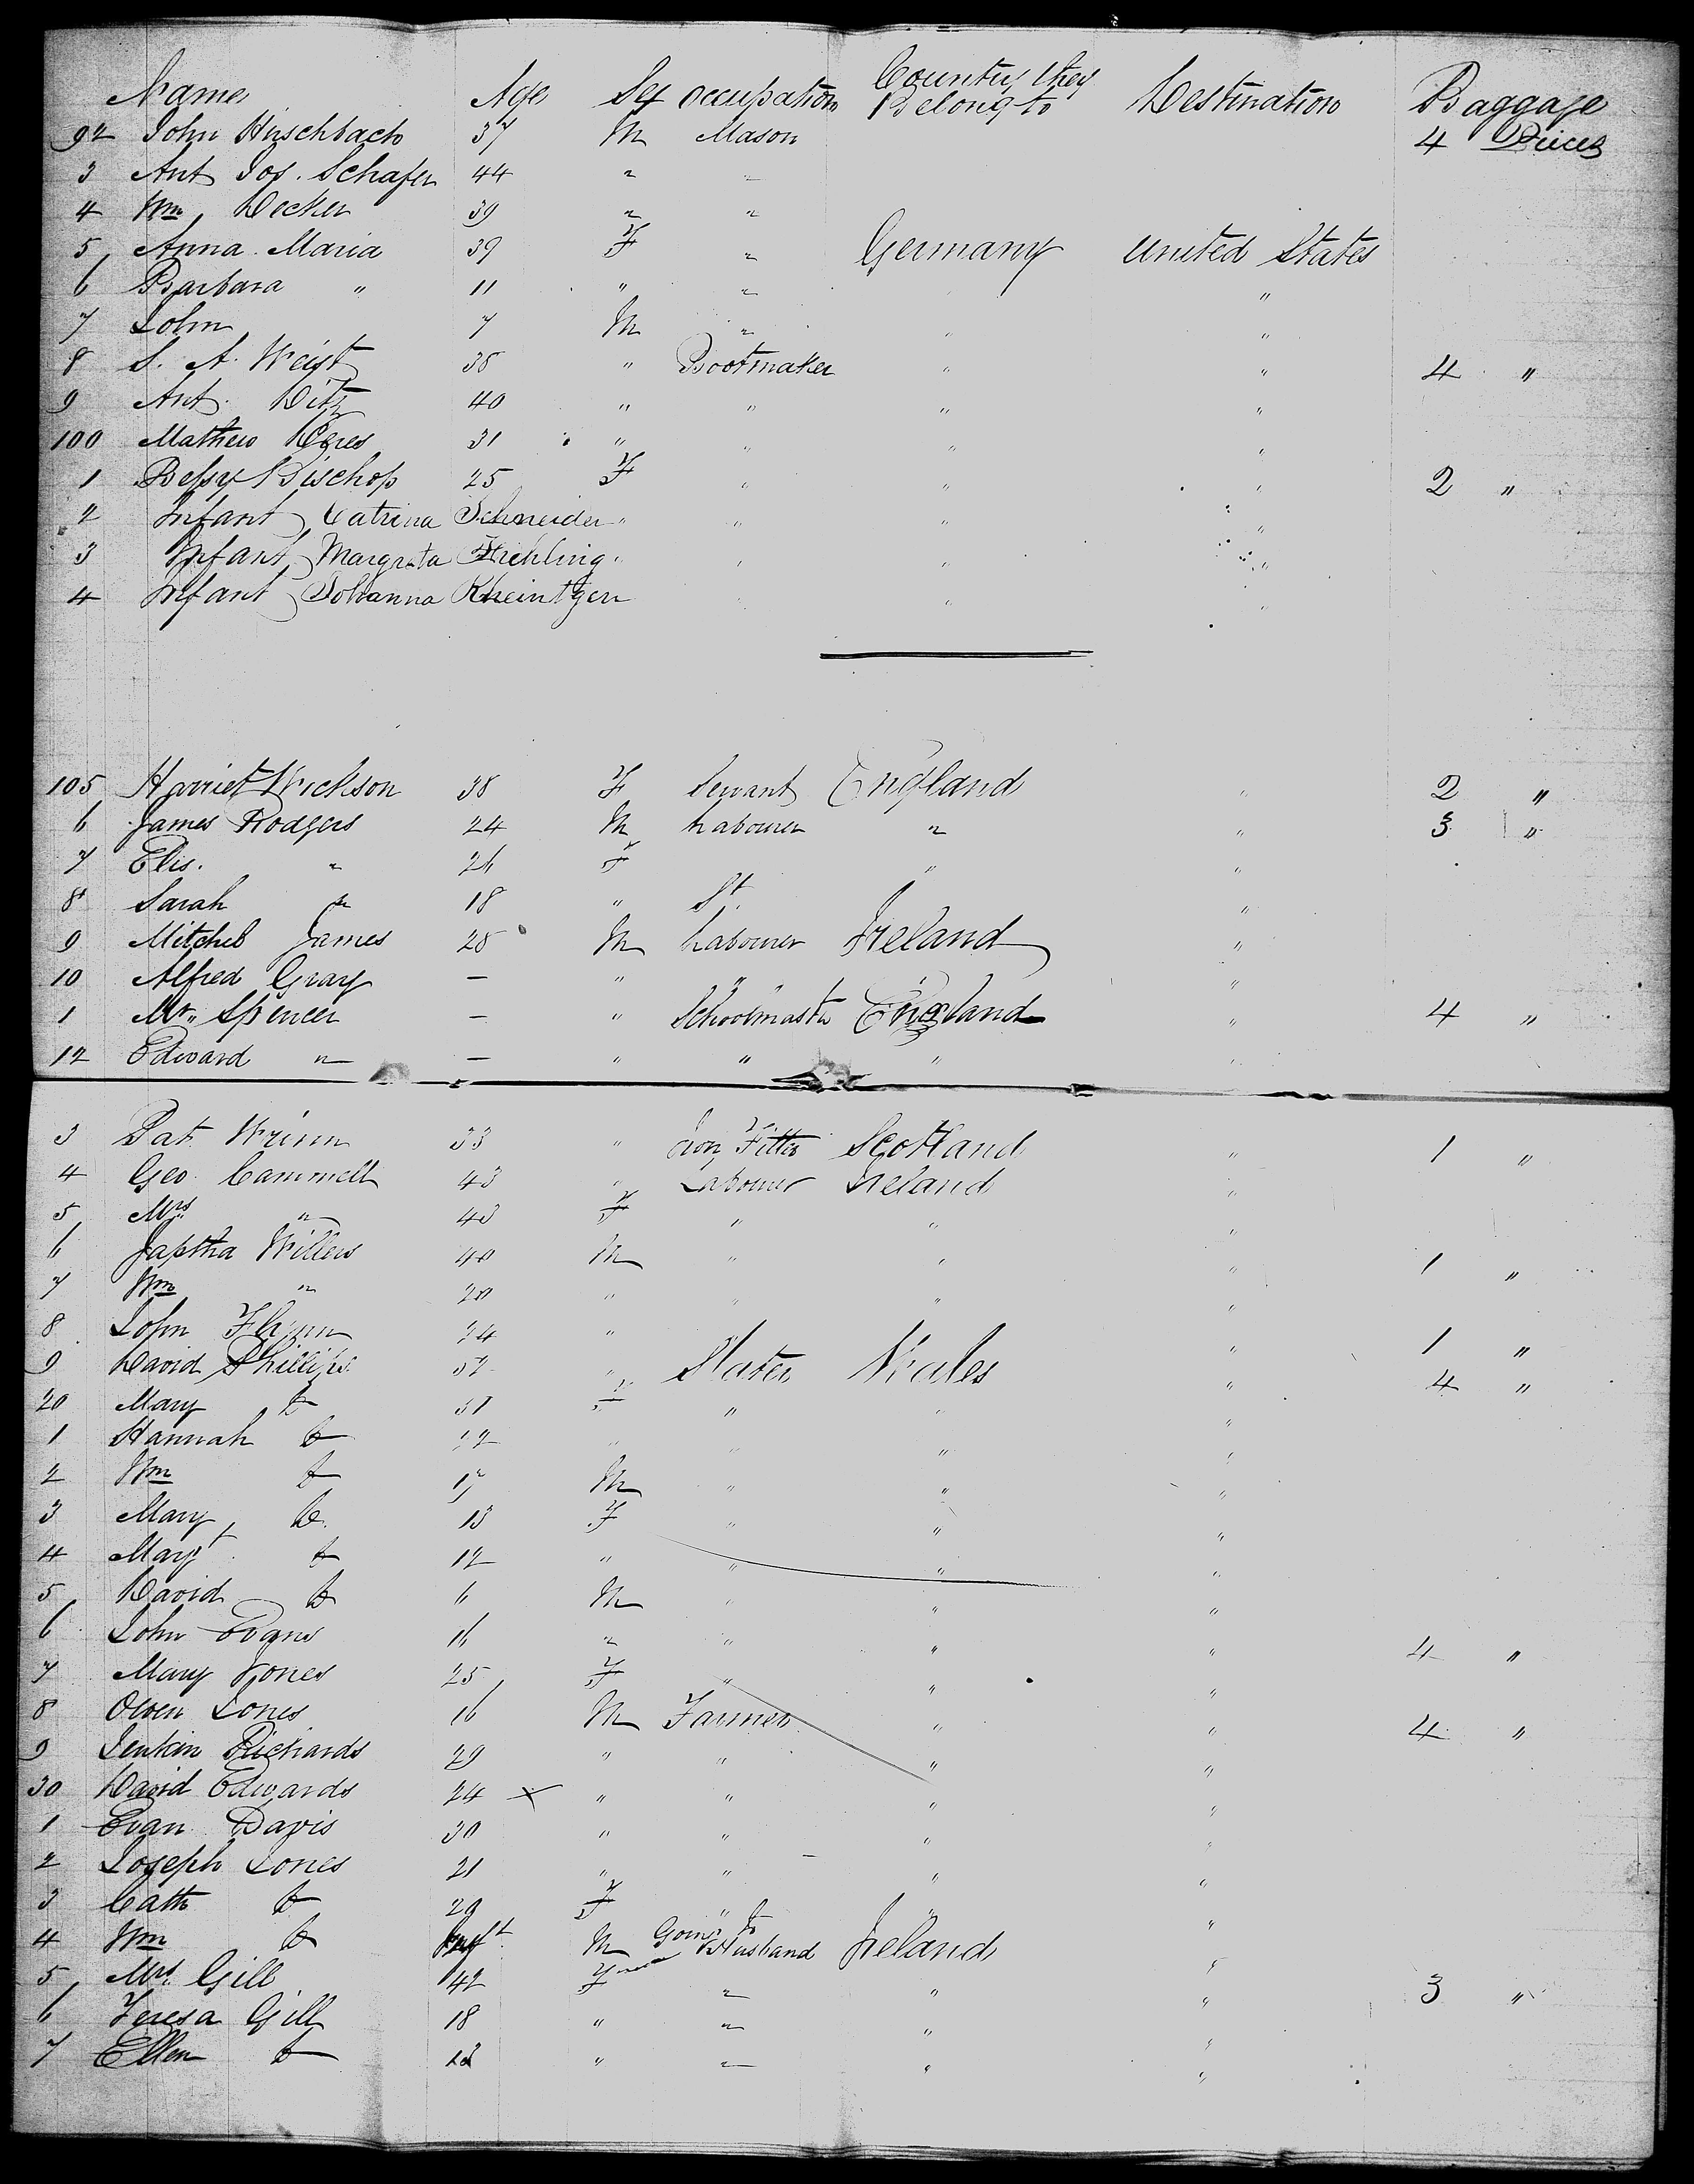 Names Age Sex Occupation Country they Belong to Destination Baggage
92 John Hirschbach 37 M Mason 4 Pieces
3 Ant Jos. Schafer 44 " "
4 Wm Decker 39 " "
5 Anna Maria 39 F " Germany United States
6 Barbara " 11 " " "
7 John 7 M " " "
8 S. A. Weist 38 " Bootmaker " " 4 "
9 Ant. Ditz 40 " " " "
100 Mathew 31 " " " "
1 Bessy Bischop 25 F " " " 2 "
2 Infant Catrina Schneider " " " "
3 Infant Margreta " " "
4 Infant Johanna Rheintgen " " "
105 Harriet Wickson 38 F Servant England " 2 "
6 James Rodgers 24 M Labourer " " 3 "
7 Elis. " 26 F " "
8 Sarah " 18 " St. "
9 Mitchel James 28 M Labourer Ireland "
10 Alfred Gray — " " "
1 Mr. Spencer — " Schoolmastr England " 4 "
12 Edward " — " " " "
3 Pat Wrinn 33 " Iron Fitter Scotland " 1 "
4 Geo. Cammell 43 " Labourer Ireland "
5 Mrs " 43 F " " "
6 Japtha Willers 40 M " " " 1 "
7 Wm " 20 " " " "
8 John Flynn 24 " " 1 "
9 David Phillips " Slater Wales " 4 "
20 Mary Do 31 F " " "
1 Hannah Do " " " "
2 Wm Do M " " "
3 Mary Do 13 F " " "
4 Margt Do 12 " " " "
5 David Do 6 M " " "
6 John Evans 16 " " " " 4 "
7 Mary Jones 25 F " " "
8 Owen Jones 16 M Farmer " " 4 "
9 Jenkin Richards 29 " " " "
30 David Edwards 24 x " " " "
1 Evan Davis 30 " " " "
2 Joseph Jones 21 " " " "
3 Cath Do 29 F " " "
4 Wm Do Inft M Going to Husband Ireland "
5 Mrs. Gill 42 F " " " 3 "
6 Teresa Gill 18 " " " "
7 Ellen Do " " " "